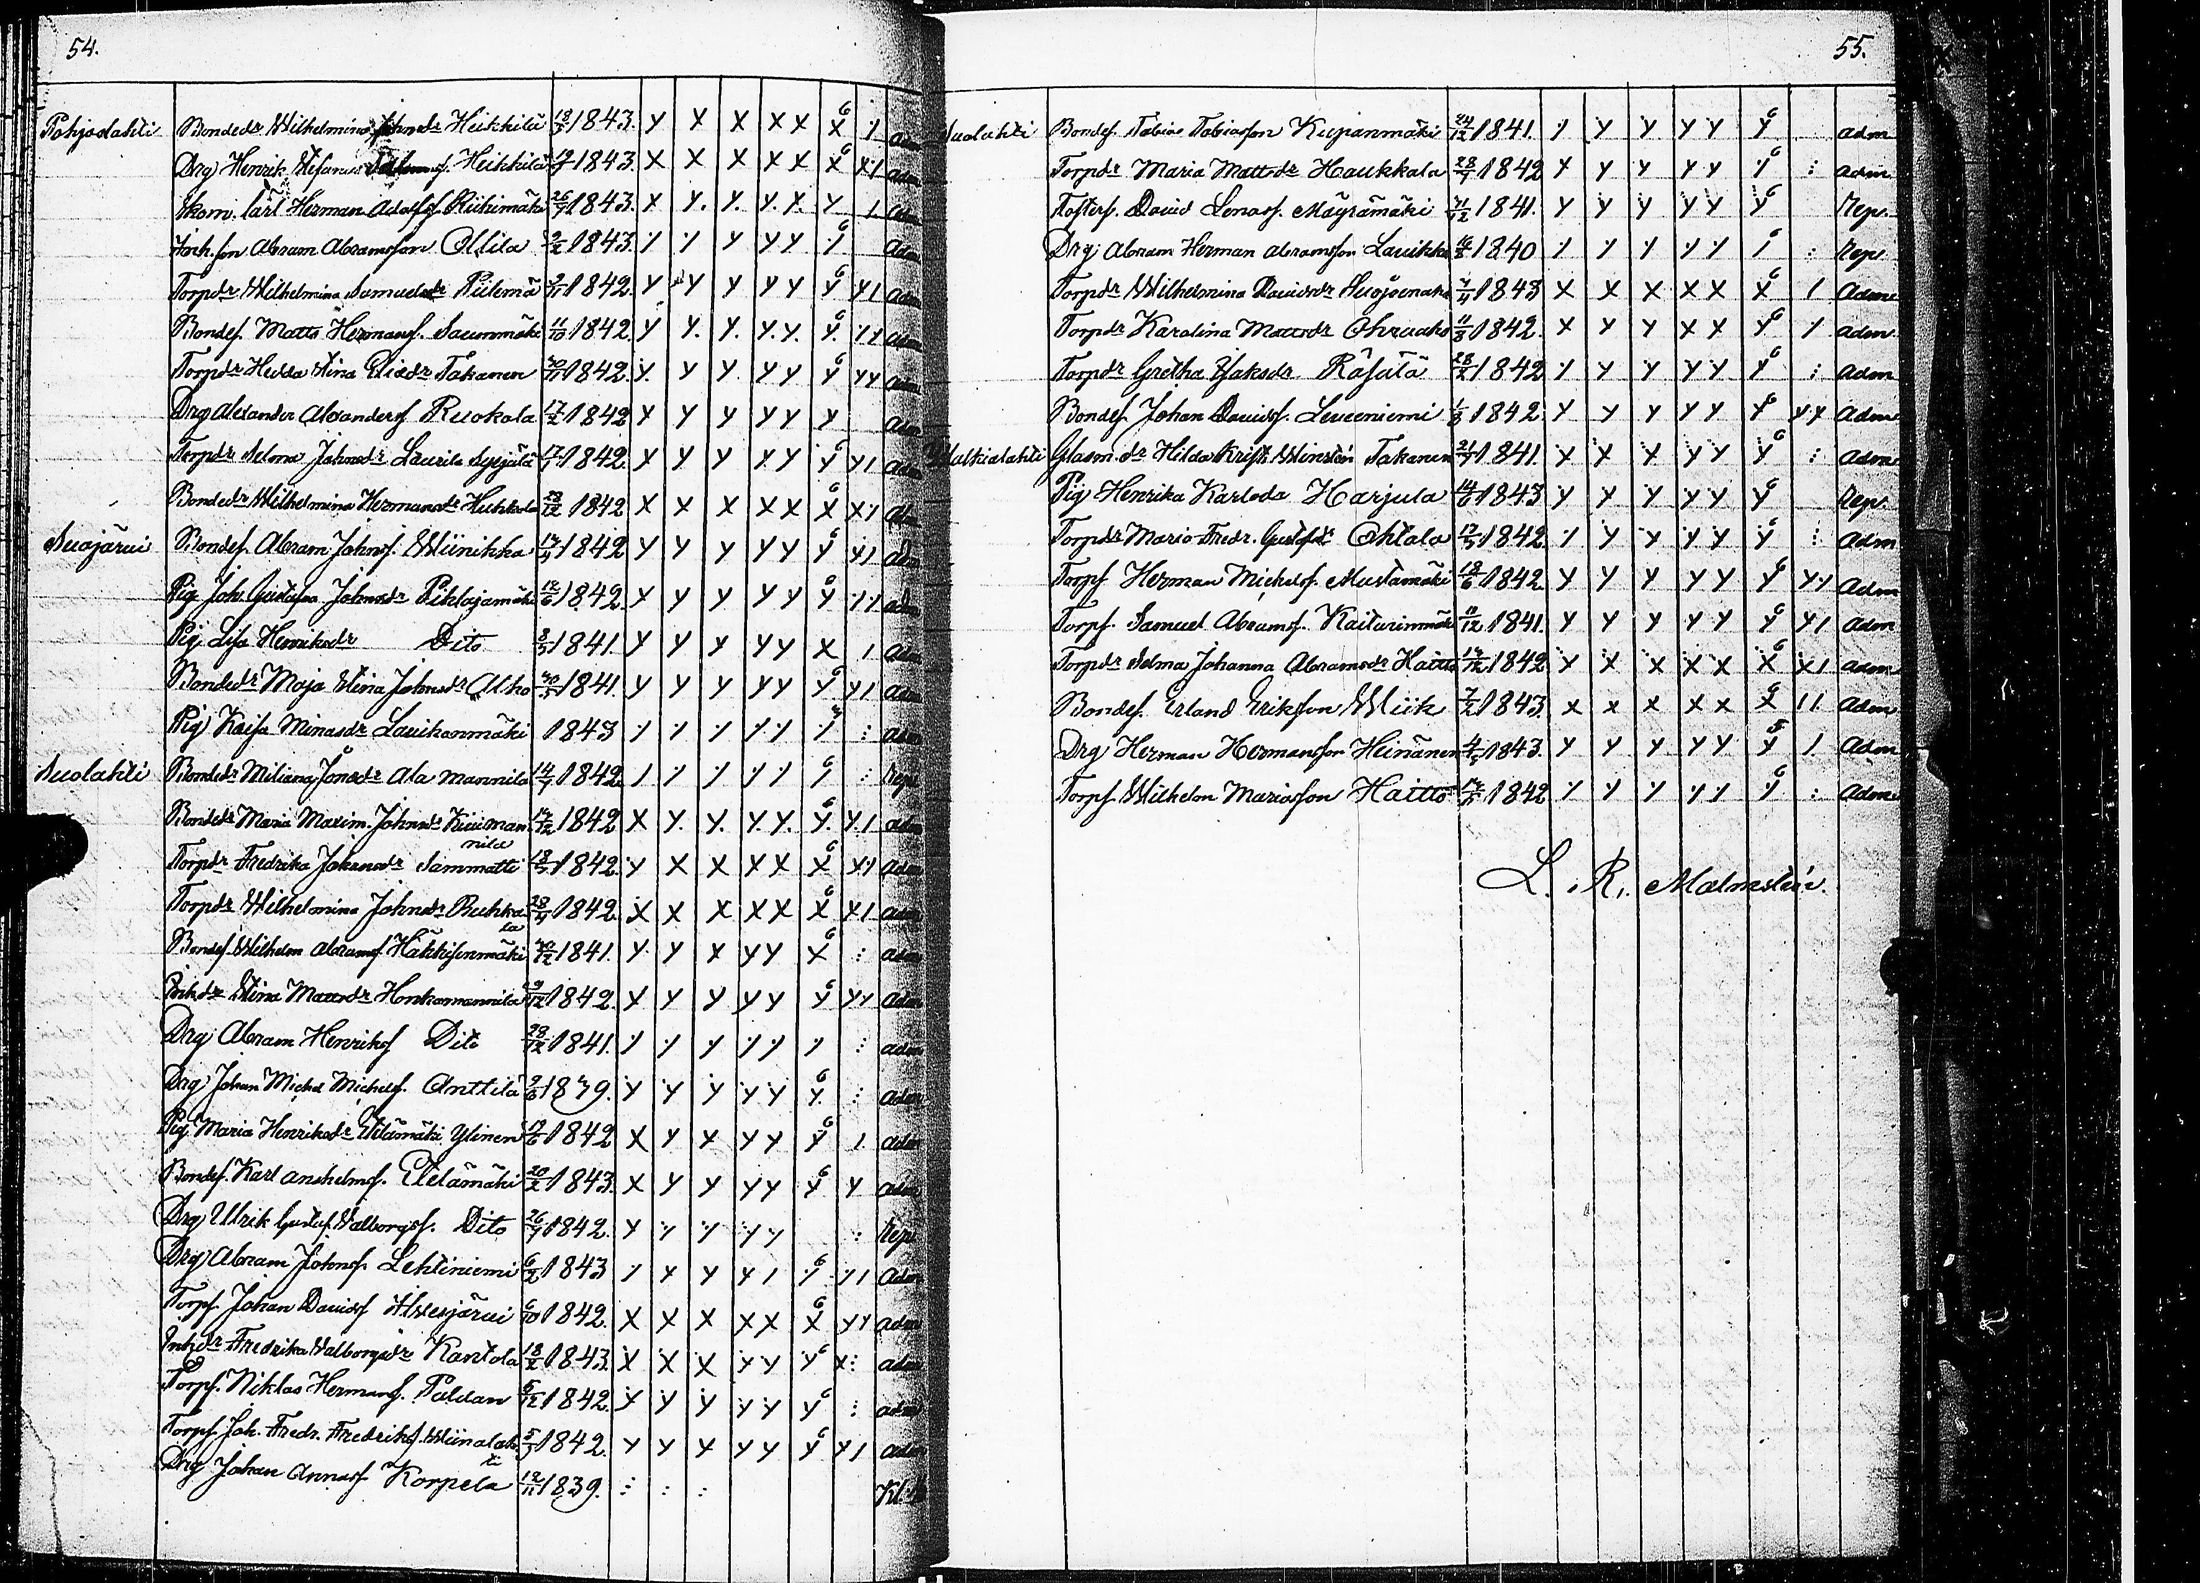 54.
Pohjoslahti Bondedr Wilhelmina Johansdr Heikkilä 18/7 1843. Y X X X X X 6 1 adm
Drg Henrik Stefanus Heikkilä 1843. X X X X X X 6 X 1 adm
Skom. Carl Herman Adolfsf Riihimäki 26/7 1843. X Y. Y. Y. X. Y 1 adm
son Abram Abramsson Ollila 9/2 1843. Y Y Y Y Y Y 6 adm
Torpdr Wilhelmina Samuelsdr Piilemä 9/11 1842. Y Y Y Y Y Y 6 Y 1 adm
Bondes. Matts Hermansf. Saunmäki 11/10 1842. Y Y. Y. Y. Y. Y. 6 Y Y adm
Torpdr Hedda Stina Eliædr Takanen 1842. Y. Y Y Y Y Y 6 Y Y adm
Drg Alexander Alexandersf Ruokola 17/2 1842 Y Y Y Y Y Y adm
Torpdr Selma Johansdr Laurila Sysjälä 1842. X Y Y X Y Y 6 Y 1 adm
Bondedr Wilhelmina Hermansdr Huhkola 1842 X X X X X X 6 X Y adm
Suojärvi Bondes. Abram Johnsf. Wiinikka 1842 Y Y Y Y Y Y 6 Y 1 adm
Pig Joh. Gustafva Johansdr Pihlajamäki 12/6 1842. X Y Y Y Y Y 6 Y Y adm
Pig Lisa Henriksdr Dito 1841. Y Y Y Y Y X 1 adm
Bondedr Maja Stina Johnsdr Alho 1841. Y Y Y Y Y Y 6 Y 1 adm
Pig Kaisa Minasdr Lauikanmäki 1843 Y Y Y Y Y Y : adm
Suolahti Bondedr Miliana Jonasdr Ala mannila 14/7 1842 1 Y Y Y Y Y 6 : Rep
Bondedr Maria Maxim. Johnsdr Kiiiman 1842 X Y. Y. Y. Y. Y. 6 Y. 1 adm
nila
Torpdr Fredrika Johansdr Sammatti 1842. Y X X X X X 6 X Y adm
Torpdr Wilhelmina Johnsdr Ruhka 1842. X X X X X X 6 X 1 adm
la
Bondes. Wilhelm Abramsf. Häkkisenmäki 1841. Y Y X Y Y X 6 : adm
Stina Mattsdr Honkamannila 1842. Y Y Y Y Y Y 6 Y Y adm
Drg Abram Henriksf Dito 28/12 1841. Y Y Y Y Y Y : adm
Drg Johan Michel Michelsf. Anttila 9/6 1839. Y Y Y Y Y Y 6 : adm
Pig Maria Henriksdr Etelämäki Ylinen 1842 X Y X Y Y Y 6 1 adm
Bondes. Karl Anshelmsf. Etelämäki 20/2 1843. X Y Y Y Y Y 6 Y adm
Drg Ulrik Gustaf Valborgsf. Dito 26/7 1842. Y Y Y Y Y : Rep
Drg Abram Johnsf. Lehtiniemi 6/2 1843 Y Y Y Y 1 Y 6 Y 1 adm
Torpf. Johan Davidsf Ahvesjärvi 6/10 1842. X X X X X X 6 Y Y adm
Inhdr Fredrika Valborgsdr Kantola 18/2 1843. X X X Y Y Y 6 X : adm
Torpf. Niklas Hermansf. Paldan 5/12 1842. Y Y Y Y Y Y 6 : adm
Torpf. Joh. Fredr. Fredriksf. Wiinalah 5/9 1842. Y Y X Y Y Y 6 Y 1 adm
ti
Drg Johan Annasf Korpela 12/11 1839. : : :
55.
Suolahti Bondes. Tobias Tobiasson Kupanmäki 24/12 1841. Y Y Y Y Y Y 6 adm
Torpdr Maria Mattsdr Haukkala 28/7 1842 X Y Y Y Y Y 6 : adm
Fosterf. David Lenasf. Mäyrämäki 31/12 1841. Y Y Y Y Y Y 6 Rep.
Drg Abram Herman Abramsson Lauikka 16/8 1840 Y Y Y Y Y Y 6 : Rep
Torpdr Wilhelmina Davidsdr Suojoenaho 7/4 1843 X X X X X X 6 1 Adm
Torpdr Karolina Mattsdr Ohraaho 11/8 1842. X Y Y X X Y 6 Y adm
Torpdr Gretha Isaksdr Räsälä 28/2 1842 Y Y Y Y Y Y 6 : adm
Bondes. Johan Davidsf. Leveeniemi 1/8 1842. Y Y Y Y Y Y 6 Y Y adm
Valkialahti Glasm.dr Hilda Krist. Winstén Takanen 21/7 1841. X X X Y Y Y 6 : adm
Pig Henrika Karlsdr Harjula 14/6 1843 Y X Y Y Y Y 6 Rep.
Torpdr Maria Fredr. Gustafsdr Ohtola 1842. Y Y Y Y Y Y 6 : adm
Torpf Herman Michelsf. Mustamäki 18/6 1842 Y Y Y Y Y Y 6 Y Y Adm
Torpf. Samuel Abramsf. Kaiturinmäki 11/12 1841. Y Y Y Y Y Y 6 Y 1 adm
Torpdr Selma Johanna Abramsdr Haitto 1842. Y X X X X X 6 X 1 adm
Bondes. Erland Eriksson Wiik 7/2 1843. X X X X X X 6 1 1 Adm
Drg Herman Hermansson Heinänen 1843. Y Y Y Y Y Y 5 1 Adm
Torpf Wilhelm Mariasson Haitto 1842 Y Y Y Y Y Y 6 : Adm
L. R. Malmstén.